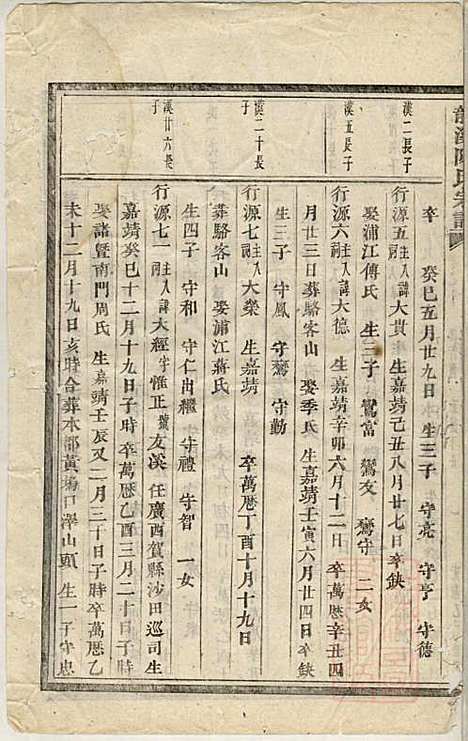 龍溪陳氏宗譜
卒　癸巳五月廿九日　生三子　守亮　守亨　守德
漢二長子
行源五主入祠諱大貴　生嘉靖己丑八月廿七日卒缺
娶浦江傅氏　生三子　鸞富　鸞友　鸞守　二女
漢五長子
行源六主入祠諱大德　生嘉靖辛卯六月十二日　卒萬曆辛丑四
月廿三日葬駱客山　娶季氏　生嘉靖壬寅六月廿四日卒缺
生三子　守鳳　守鸞　守勤
漢二十長子
行源七主入祠諱大榮　生嘉靖　　卒萬曆丁酉十月十九日
葬駱客山　娶浦江蔣氏
生四子　守和　守仁出繼　守禮　守智　一女
漢廿六長子
行源七一主入祠諱大經字惟正號友溪　任廣西賀縣沙田巡司生
嘉靖癸巳十二月十九日子時卒萬曆乙酉三月二十日子時
娶諸暨南門周氏　生嘉靖壬辰又二月三十日子時卒萬曆乙
未十二月十九日亥時合葬本郡黃塲口澤山頭　生一子守忠